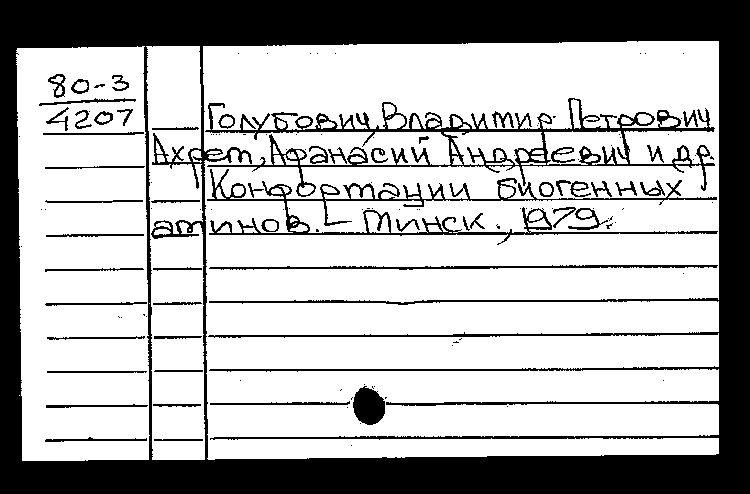 80-3
4207
Голубович, Владимир Петрович
Ахрем, Афанасий Андреевич и др.
Конформации биогенных
аминов. — Минск., 1979.